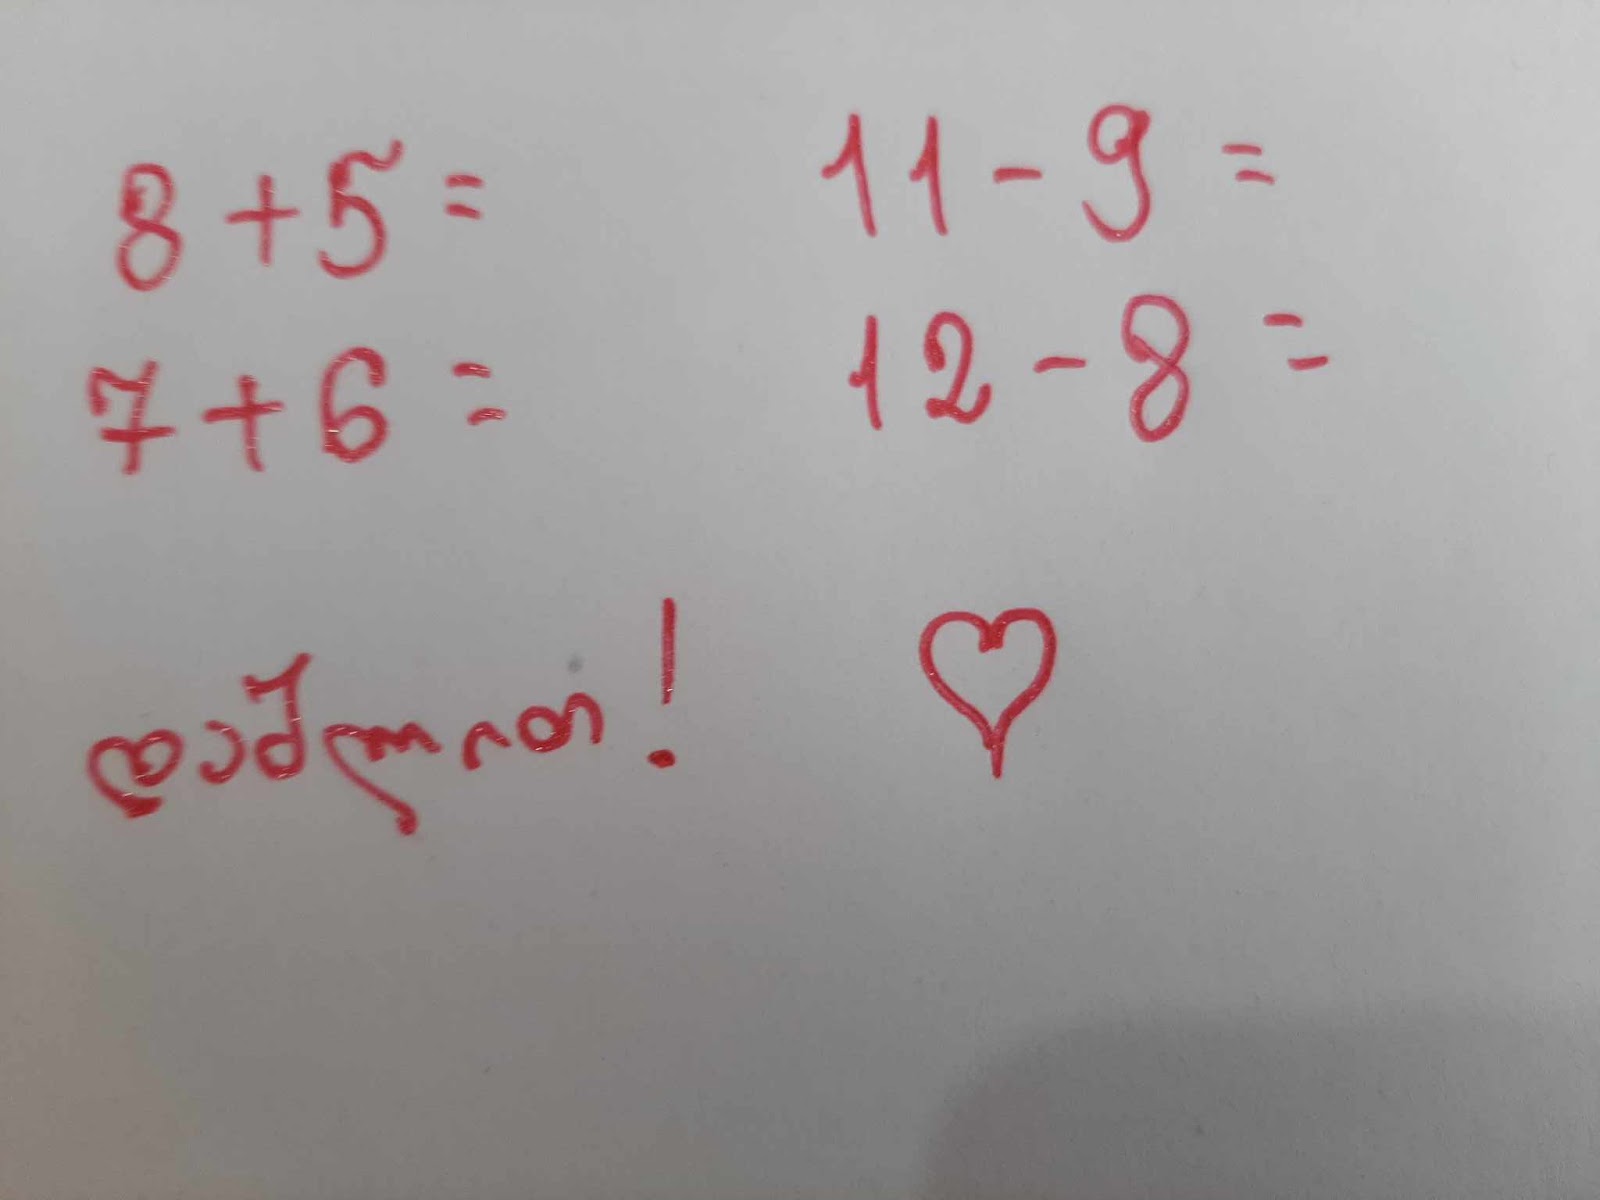 8 + 5 = 11 - 9 =
7 + 6 = 12 - 8 =